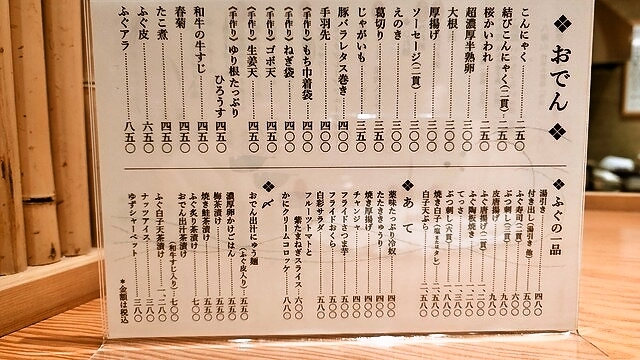 ❖おでん❖
こんにゃく 二五〇
結びこんにゃく(二貫) 二五〇
桜かいわれ 二五〇
超濃厚半熟卵 三〇〇
大根 三〇〇
厚揚げ 三〇〇
ソーセージ(二貫) 三〇〇
えのき 三〇〇
葛切り 三五〇
じゃがいも 三五〇
豚バラレタス巻き 四〇〇
手羽先 四〇〇
〈手作り〉もち巾着袋 四〇〇
〈手作り〉ねぎ袋 四〇〇
〈手作り〉ゴボ天 四五〇
〈手作り〉生姜天 四五〇
〈手作り〉ゆり根たっぷり
ひろうす 四五〇
和牛の牛すじ 四五〇
春菊 四五〇
たこ煮 四五〇
ふぐ皮 六五〇
ふぐアラ 八五〇
❖ふぐの一品
湯引き 四八〇
付き出し(湯引き他) 五〇〇
ふぐ寿司(二貫) 六〇〇
ぶつ刺し(三貫) 九八〇
皮唐揚げ 九八〇
ふぐ唐揚げ(二貫)
ふぐ陶板焼き
てっさ
ぶつ刺し(六貫)
焼き白子(塩またはタレ)
白子天ぷら
❖あて
薬味たっぷり冷奴 四〇〇
たたききゅうり 四〇〇
焼き厚揚げ 四〇〇
チャンジャ 四〇〇
フライドさつま芋 五〇〇
フライドおくら 五〇〇
白彩サラダ 五八〇
フルーツトマトと
紫たまねぎスライス 六〇〇
かにクリームコロッケ 八八〇
❖〆
おでん出汁にゅう麺
(ふぐ皮入り) 五五〇
濃厚卵かけごはん 五五〇
梅茶漬け 五五〇
焼き鮭茶漬け 五五〇
ふぐ炙り茶漬け 七〇〇
おでん出汁茶漬け
(和牛すじ入り) 七〇〇
ふぐ白子天茶漬け 一、二八〇
ナッツアイス 三八〇
ゆずシャーベット 三八〇
*金額は税込